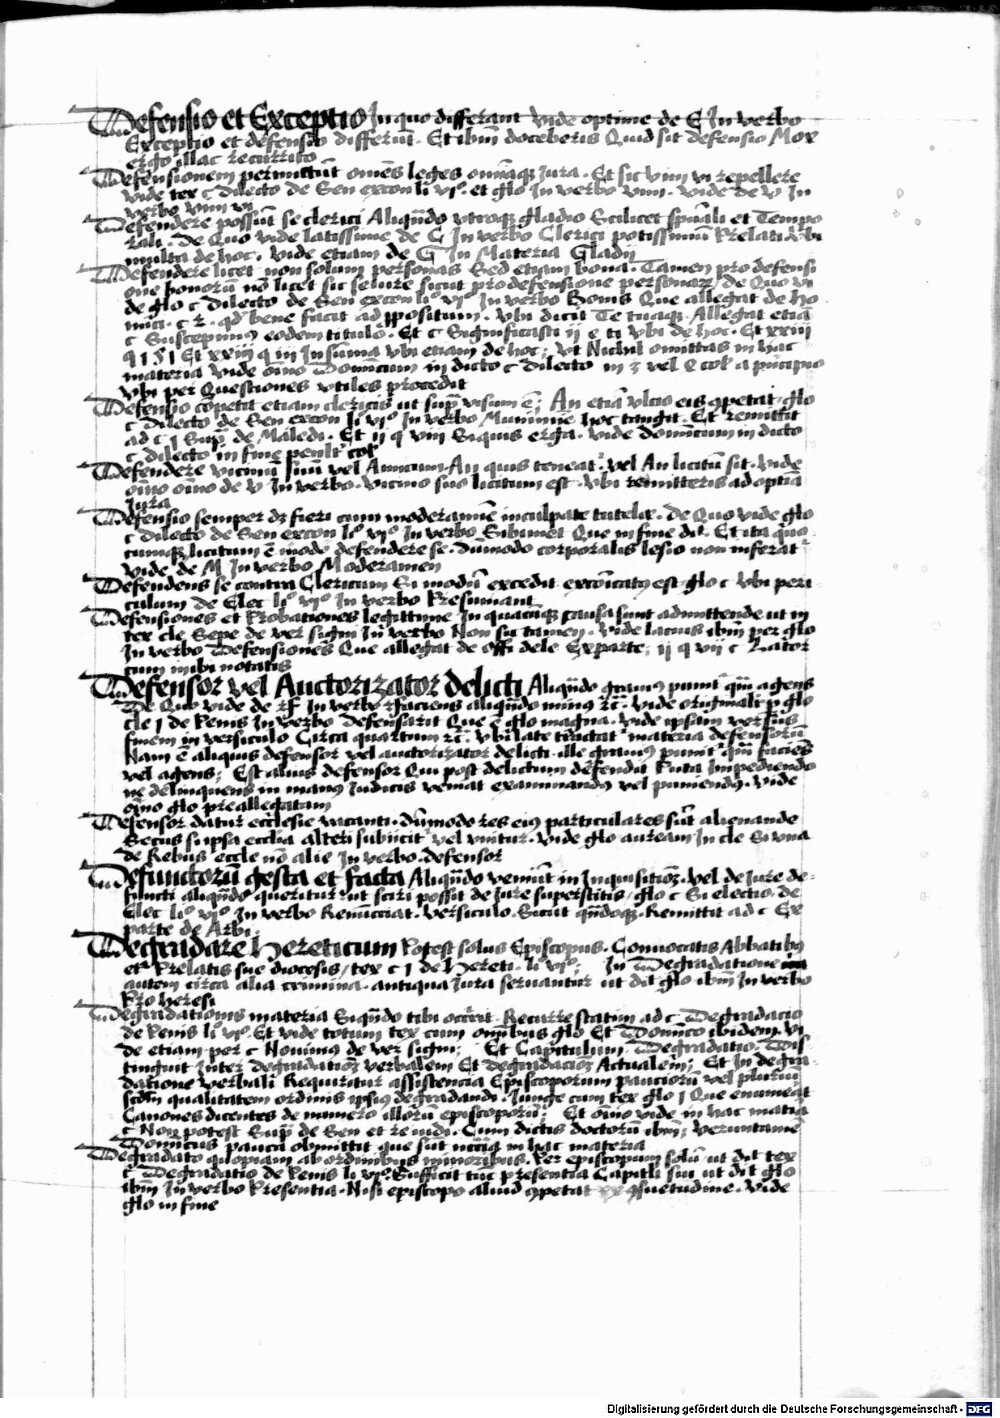 Defensio et Exceptio In quo differant vide optime de E In verbo
Exceptio et defensio differūt. Et ibm̄ doceberis Quid sit defensio Mox
ergo illac recurrito
Defensionem permittūt om̄es leges om̄iaqꝫ Jura. Et sic vim vi repellere
vide tex c Dilecto de Sen excon li vjͦ. et glo In verbo vim. vide de V In
verbo vim vi
Defendere possūt se clerici Aliqn̄do vtroqꝫ gladio Scilicet spūali et Tempo
rali. De Quo vide latissime de C In verbo Clerici potissimū Prelati vbi
multa de hoc. vide etiam de G In Materia Gladii
Defendere licet non solum personas Sed etiam bona. Tamen pro defensi
one bonorū nō licet sic seuire sicut pro defensione personarꝫ de Quo vi
de glo c Dilecto de Sen excon li vjͦ In verbo Bonis Que allegat de ho
mici. c 2. qd̓ bene facit ad ppositum. vbi dicit Te tuaqꝫ. Allegat etiā
c Suscepimus eodem titulo. Et c Significasti ij e ti vbi de hoc. Et xxiij
q Et xxiij q iij In sūma vbi etiam de hoc; vt Nichil omittas in hac
materia vide oīno Domīcum in dicto c Dilecto in 3 vel Q col a pn̄cipio
vbi per Questiones vtiles procedit
Defensio cōpetit etiam clericis ut sup̄ visum ē; An etiā vlcio eis ꝯpetat. glo
c Dilecto de Sen excon li vjͦ In verbo Munimine hoc tangit. Et remittit
ad c j Sup̄ de Maledi. Et ij q viij Siquis erga. vide domīcum in dicto
c dilecto in fine penlt̄ col
Defendere vicinū suū vel Amicum An quis teneat̓ vel An licitū sit. vide
oīno oīno de V In verbo. vicino suo licitum est. vbi remitteris ad optia
Jura
Defensio semper dꝫ fieri cum moderamīe inculpate tutele. de Quo vide glo
c Dilecto de Sen excon li vjͦ In verbo Sibimet Que in fine dit. Et ita quo
cumqꝫ licitum ē modo defendere se. dūmodo corporalis lesio non inferat̓
vide de M In verbo Moderamen
Defendens se contra Clericum Si modū excedit excōicatꝯ est glo c vbi peri
culum de Elec li vjͦ In verbo Presumant
Defensiones et Probationes legittime In quacūqꝫ causa sunt admittende ut in
tex cle Sepe de ver signi In verbo Non sic tamen. vide lacius ibm̄ per glo
In verbo Defensiones Que allegat de offi dele Exparte; ij q vij c Lator
cum inibi notatis
Defensor vel Auctorizator delicti Aliqn̄do grauiꝯ punit̓ qm̄ agens
De Quo vide de rf In verbo rfaciens aliqn̄do minus rc̄. vide originalit̓ p glo
cle j de Penis In verbo Defensarit Que ē glo magna. vide ipsam versus
finem in versiculo Circa quartum rc̄. vbi late tractat̓ materia defensorū
Nam ē aliquis defensor vel auctorizator delicti. ille grauiꝯ punit̓ qm̄ faciēs
vel agens; Est alius defensor Qui post delictum defendit Puta Impediendo
ne delinquens in manꝯ Judicis veniat examinandꝯ vel puniendꝯ. vide
oīno glo preallegatam
Defensor datur ecclesie vacanti. dūmodo res eiꝯ particulares sūt alienande
Secus si ipsa ecclia alteri subiicit̓ vel vnitur. vide glo auream In cle Si vna
de Rebus eccle nō alie In verbo. defensor
Defunctorū gesta et facta Aliqn̄do veniūt in Inquisitiōꝫ. vel de Jure de-
functi aliqn̄do queritur ut sciri possit de Jure superstitis / glo c Si electio. de
Elec li vjͦ In verbo Renūciat. versiculo. Sicut qn̄doqꝫ. Remittit ad c Ex
parte de Arbi.
Degradare hereticum Potest solus Episcopus. Conuocatis Abbatibꝯ
et Prelatis sue diocesis / tex c j de Hereti. li vjͦ; In Degradatione
autem circa alia crimina. antiqua Jura seruantur ut dit glo ibm̄ In verbo
Pro heresi
Degradationis materia Siqn̄do tibi occr̄it Recurre statim ad c Degradacio
de Penis li vjͦ. Et vide totum tex cum om̄ibus glo Et Domīco ibidem. vi
de etiam per c Nouimus de ver signi; Et Capitulum. Degradatio. Dis
tinguit Inter degradatiōꝫ verbalem Et degradaciōꝫ Actualem; Et In degra-
datione verbali Requiritur assistencia Episcoporum pauciorū vel pluriū
scdm̄ qualitatem ordinis ipsius degradandi. Junge cum tex glo j Que enumeat
Canones dicentes de numero illorū episcoporū; Et oīno vide in hac matia
c Non potest Sup̄ de Sen et re iudi. Cum dictis doctorū ibm̄; veruntamē
Domīcus pauca obmittit que sūt in hac materia
Degradato quopiam ab ordinibus minoribus. Per episcopum solū ut dit tex
c Degradatio de Penis li vjͦ. Sufficit tūc presentia Capitli sui ut dit glo
ibm̄ In verbo Presentia. Nisi episcopo aliud ꝯpetat ex ꝯsuetudine. vide
glo in fine
Digitalisierung gefördert durch die Deutsche Forschungsgemeinschaft - DFG